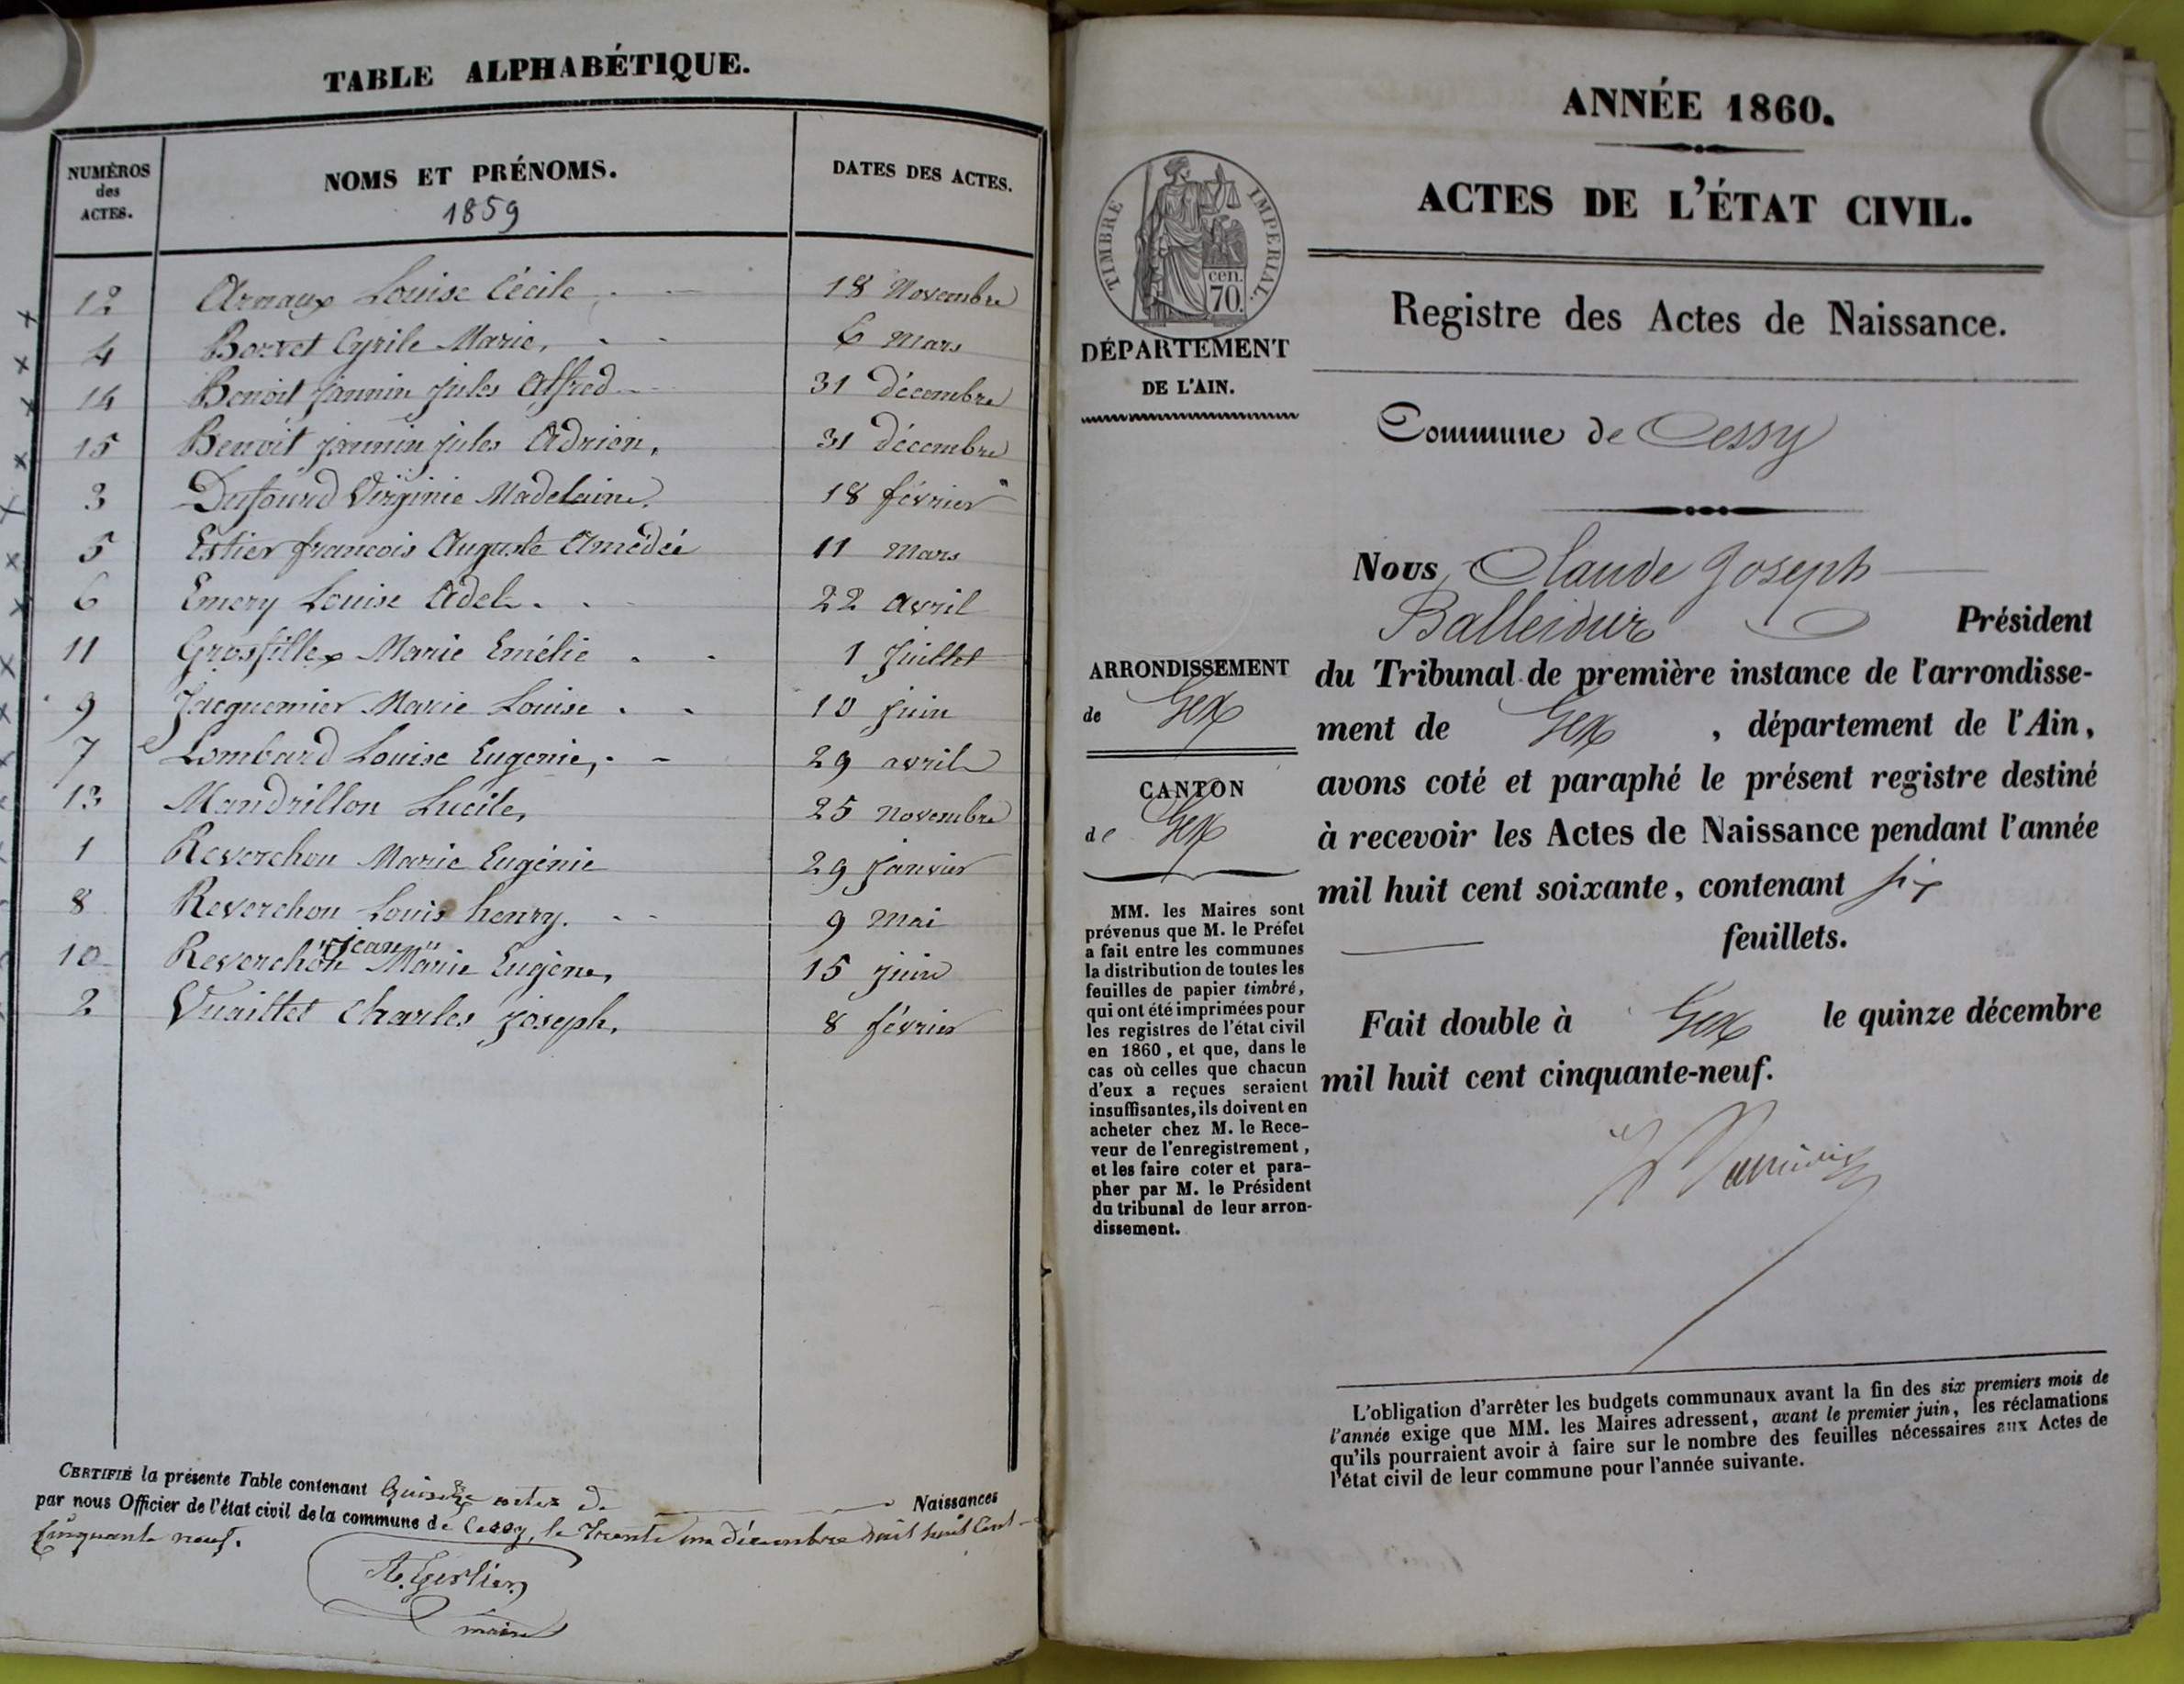 TABLE ALPHABÉTIQUE.
NUMÉROS des ACTES. NOMS ET PRÉNOMS. 1859 DATES DES ACTES.
12 Arnaux Louise Cécile 18 Novembre
4 Borvet Cyrile Marie, 6 Mars
14 Benoit Jannin Jules Alfred 31 décembre
15 Benoit Jannin Jules Adrien, 31 décembre
3 Dufourd Virginie Madelaine. 18 février
5 Estier francois Auguste Amédée 11 Mars
6 Emery Louise Adel. 22 avril
11 Grosfillex Marie Emélie 1 Juillet
9 Jacquemier Marie Louise 10 juin
7 Lombard Louise Eugenie, 29 avril
13 Mandrillon Lucile, 25 Novembre
1 Reverchon Marie Eugénie 29 Janvier
8 Reverchon Louis henry. 9 Mai
10 Reverchon "Jean" Marie Eugène, 15 juin
2 Vuaillet Charles Joseph, 8 février
CERTIFIÉ la présente Table contenant Quinze actes de Naissances
par nous Officier de l'état civil de la commune de Cessy, le Trente un décembre mil huit Cent
Cinquante neuf.
A. Gerlier
maire
ANNÉE 1860.
ACTES DE L'ÉTAT CIVIL.
TIMBRE IMPERIAL.
cen.
70.
Registre des Actes de Naissance.
DÉPARTEMENT
DE L'AIN.
Commune de Cessy
Nous, Claude Joseph
Balleidier Président
du Tribunal de première instance de l'arrondisse-
ment de Gex, département de l'Ain,
avons coté et paraphé le présent registre destiné
à recevoir les Actes de Naissance pendant l'année
mil huit cent soixante, contenant six
feuillets.
Fait double à Gex le quinze décembre
mil huit cent cinquante-neuf.
ARRONDISSEMENT
de Gex
CANTON
de Gex
MM. les Maires sont
prévenus que M. le Préfet
a fait entre les communes
la distribution de toutes les
feuilles de papier timbré,
qui ont été imprimées pour
les registres de l'état civil
en 1860, et que, dans le
cas où celles que chacun
d'eux a reçues seraient
insuffisantes, ils doivent en
acheter chez M. le Rece-
veur de l'enregistrement,
et les faire coter et para-
pher par M. le Président
du tribunal de leur arron-
dissement.
L'obligation d'arrêter les budgets communaux avant la fin des six premiers mois de
l'année exige que MM. les Maires adressent, avant le premier juin, les réclamations
qu'ils pourraient avoir à faire sur le nombre des feuilles nécessaires aux Actes de
l'état civil de leur commune pour l'année suivante.